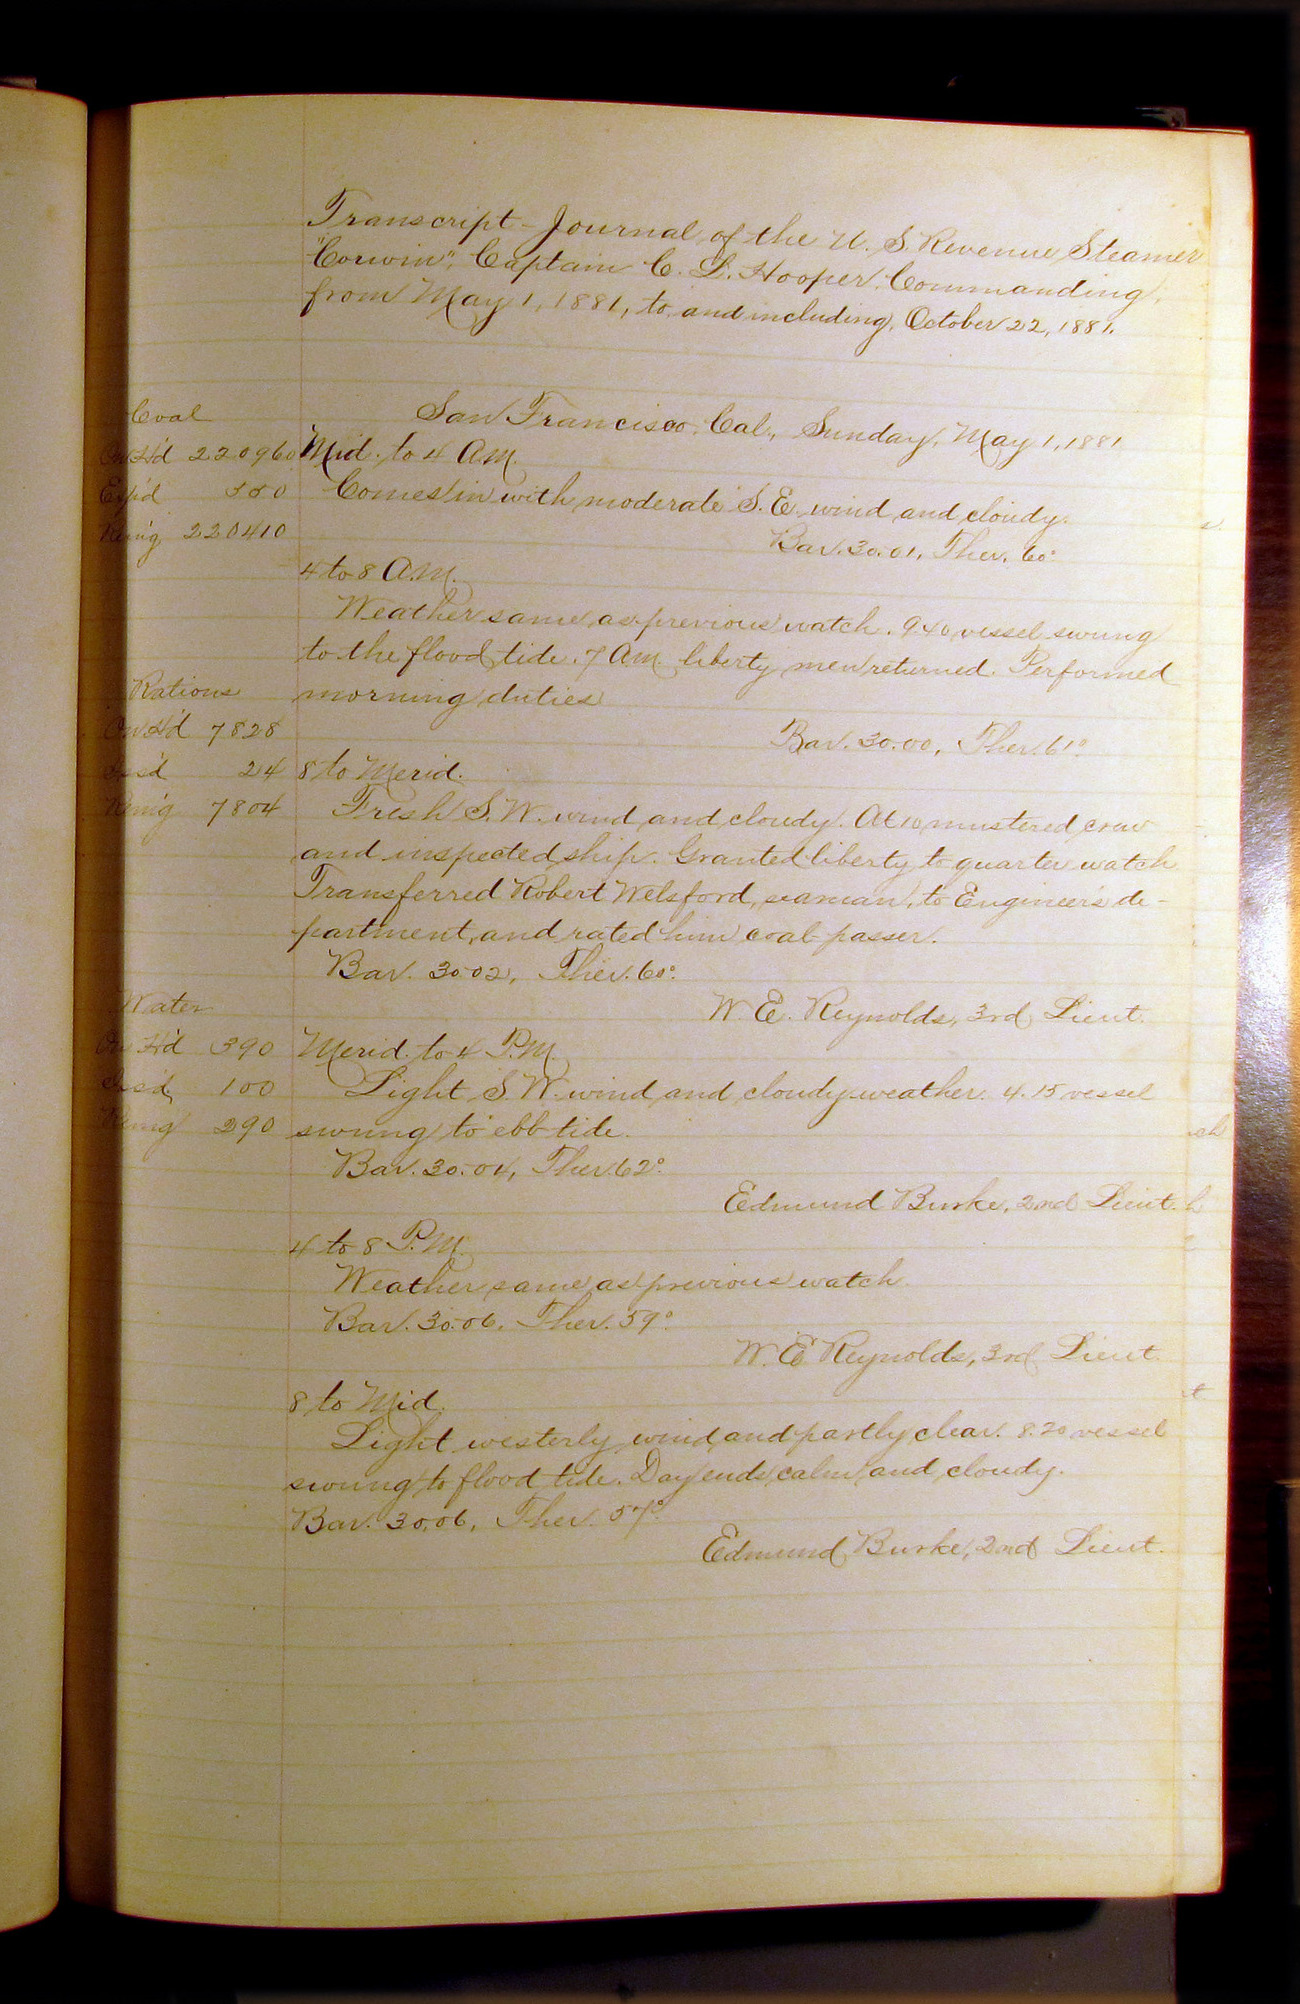 Transcript-Journal of the U. S. Revenue Steamer
"Corwin", Captain C. L. Hooper, Commanding,
from May 1, 1881, to, and including, October 22, 1881.
San Francisco, Cal., Sunday, May 1, 1881
Coal
On H'd 220960
Exp'd 550
Rem'g 220410
Mid. to 4 A.M.
Comes in with moderate S. E. wind and cloudy.
Bar. 30.01, Ther. 60°
4 to 8 A.M.
Weather same as previous watch. 9.40 vessel swung
to the flood tide. 7 A.M. liberty men returned. Performed
morning duties
Bar. 30.00, Ther. 61°
Rations
On H'd 7828
Iss'd 24
Rem'g 7804
8 to Merid.
Fresh S. W. wind and cloudy. At 10 mustered crew
and inspected ship. Granted liberty to quarter watch
Transferred Robert Welsford, seaman, to Engineer's de-
partment, and rated him coal passer.
Bar. 30.02, Ther. 60°.
W. E. Reynolds, 3rd Lieut.
Water
On H'd 390
Iss'd 100
Rem'g 290
Merid. to 4 P.M.
Light S. W. wind and cloudy weather. 4.15 vessel
swung to ebb tide.
Bar. 30.04, Ther. 62°.
Edmund Burke, 2nd Lieut.
4 to 8 P.M.
Weather same as previous watch
Bar. 30.06. Ther. 59°.
W. E. Reynolds, 3rd Lieut.
8 to Mid.
Light westerly wind and partly clear. 8.20 vessel
swung to flood tide. Day ends calm and cloudy.
Bar. 30.06, Ther. 57°.
Edmund Burke, 2nd Lieut.